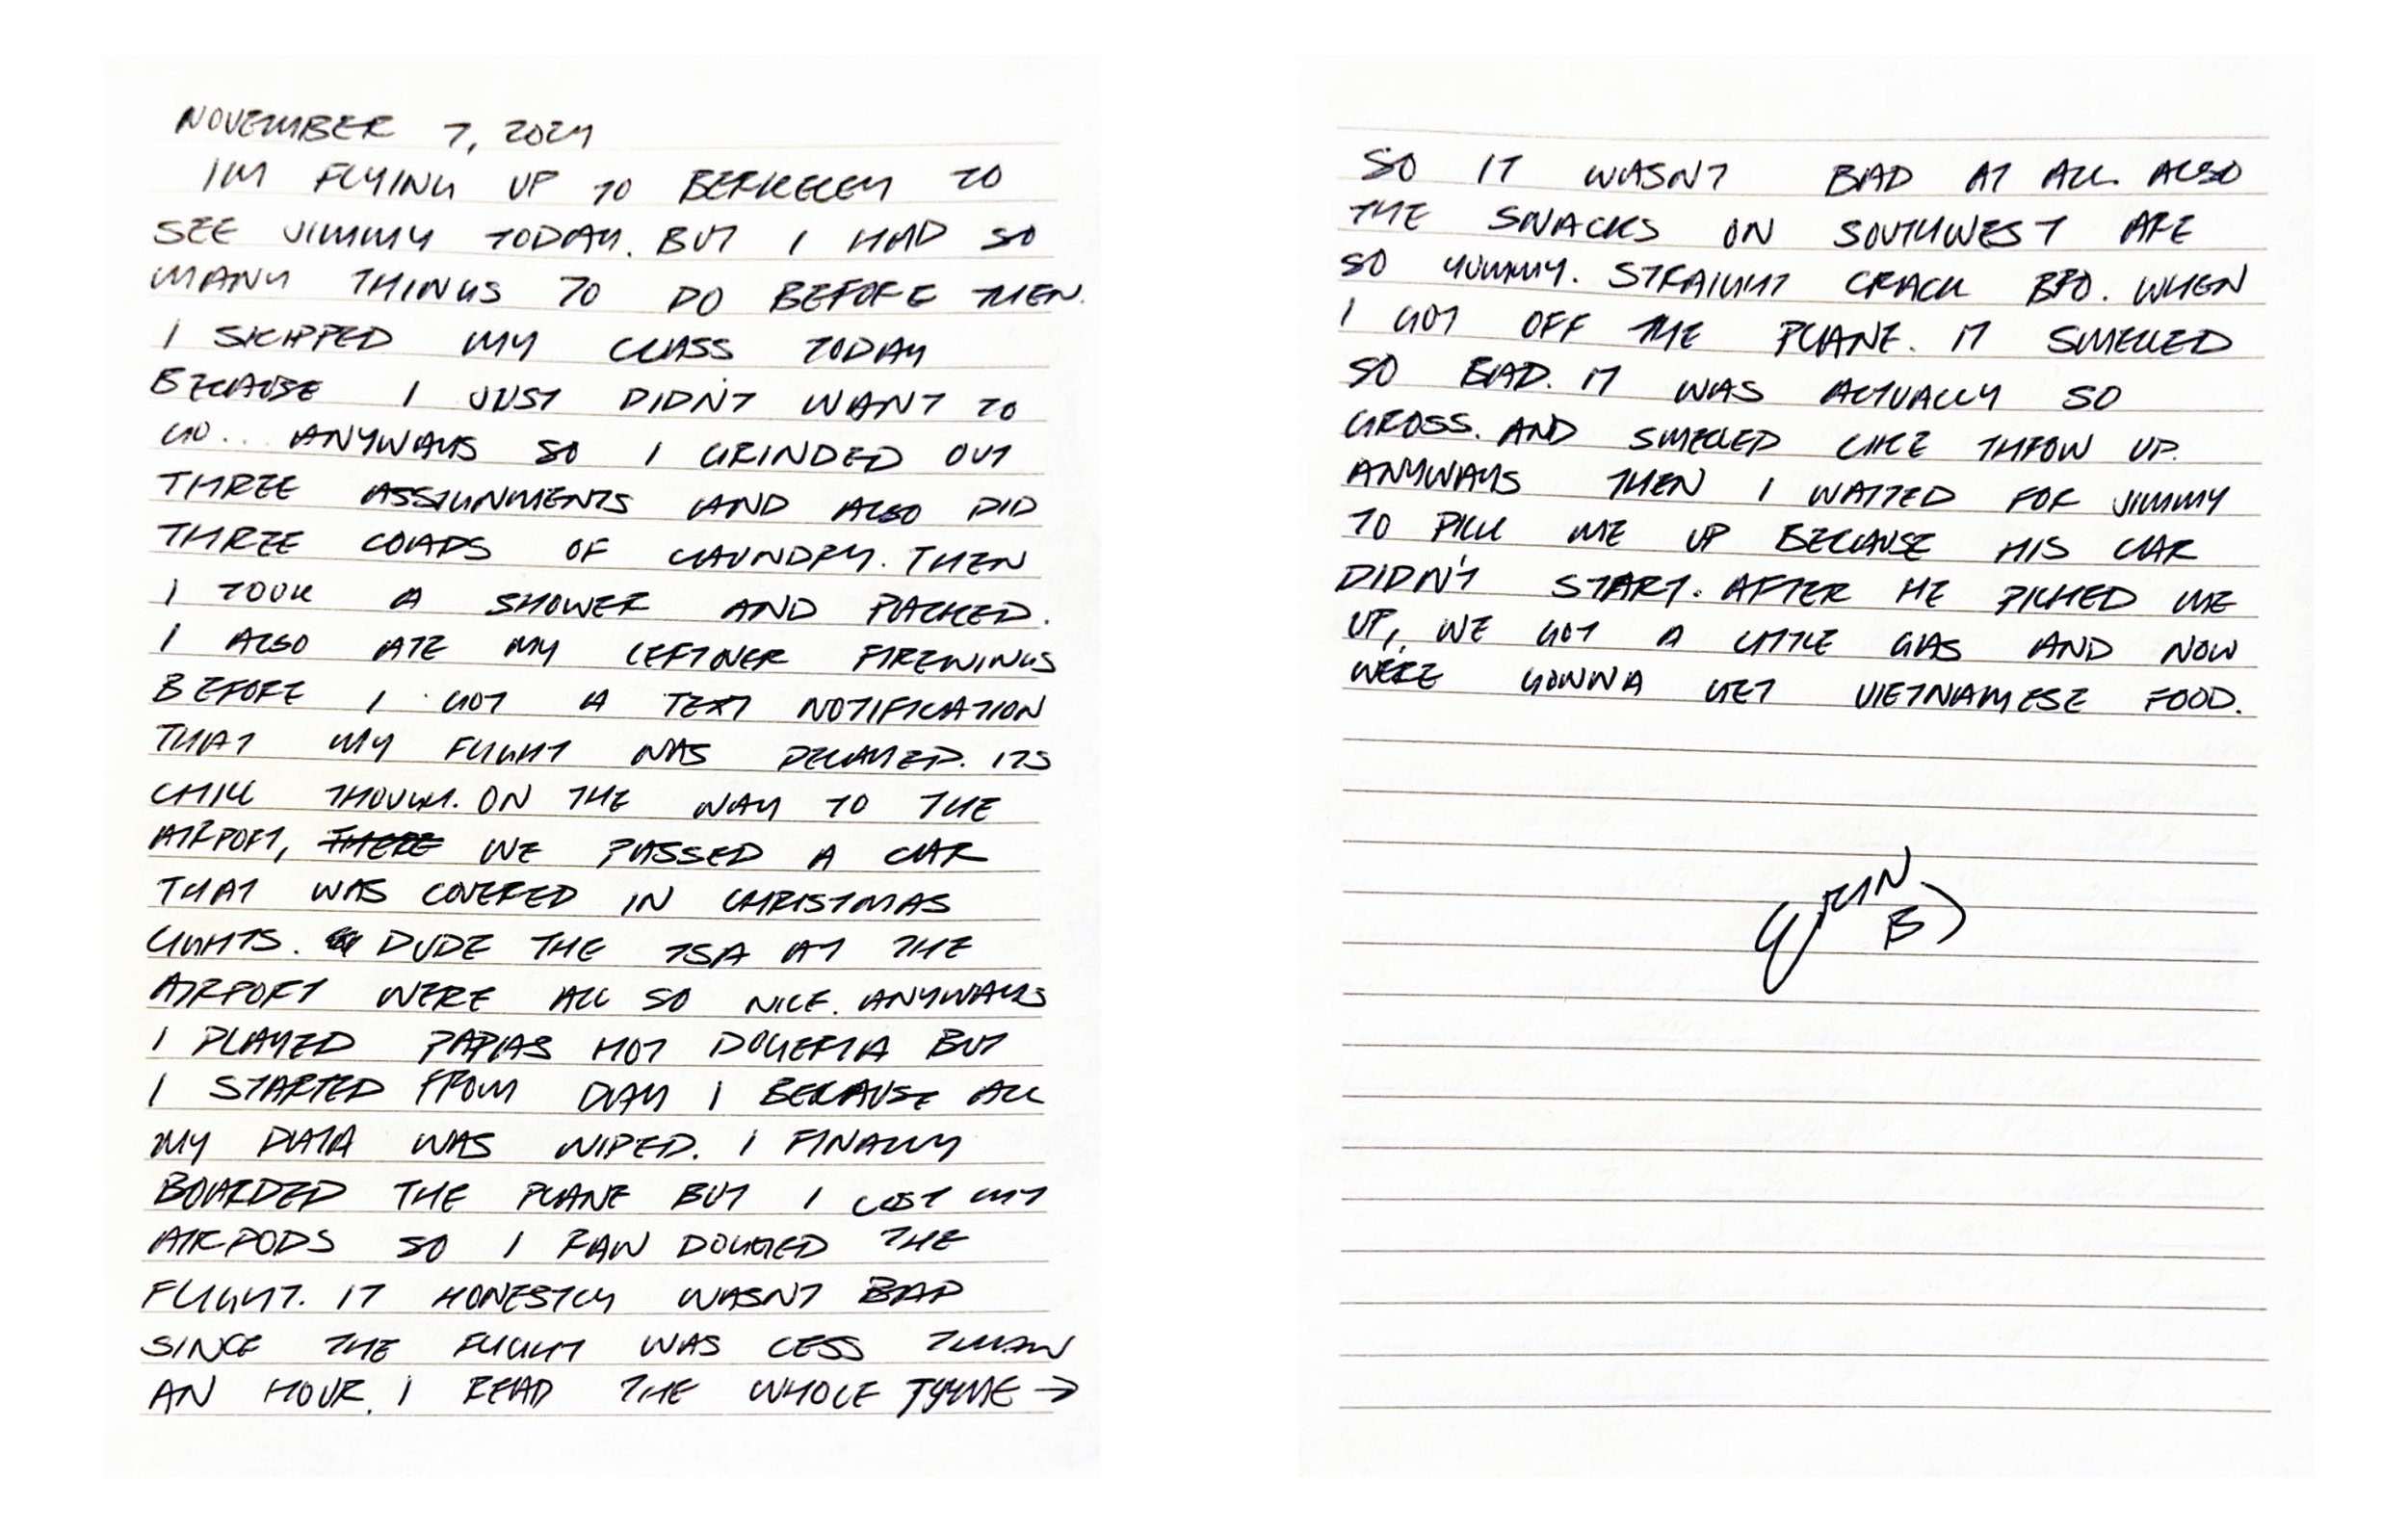 NOVEMBER 7, 2024
IM FLYING UP TO BERKELEY TO
SEE JIMMY TODAY. BUT I HAD SO
MANY THINGS TO DO BEFORE THEN.
I SKIPPED MY CLASS TODAY
BECAUSE I JUST DIDN'T WANT TO
GO... ANYWAYS SO I GRINDED OUT
THREE ASSIGNMENTS AND ALSO DID
THREE LOADS OF LAUNDRY. THEN
I TOOK A SHOWER AND PACKED.
I ALSO ATE MY LEFTOVER FIREWINGS
BEFORE I GOT A TEXT NOTIFICATION
THAT MY FLIGHT WAS DELAYED. ITS
CHILL THOUGH. ON THE WAY TO THE
AIRPORT, THERE WE PASSED A CAR
THAT WAS COVERED IN CHRISTMAS
LIGHTS. DUDE THE TSA AT THE
AIRPORT WERE ALL SO NICE. ANYWAYS
I PLAYED PAPAS HOT DOGERIA BUT
I STARTED FROM DAY 1 BECAUSE ALL
MY DATA WAS WIPED. I FINALLY
BOARDED THE PLANE BUT I LOST MY
AIRPODS SO I RAW DOGGED THE
FLIGHT. IT HONESTLY WASNT BAD
SINCE THE FLIGHT WAS LESS THAN
AN HOUR. I READ THE WHOLE TYME →
SO IT WASNT BAD AT ALL. ALSO
THE SNACKS ON SOUTHWEST ARE
SO YUMMY. STRAIGHT CRACK BRO. WHEN
I GOT OFF THE PLANE. IT SMELLED
SO BAD. IT WAS ACTUALLY SO
GROSS. AND SMELLED LIKE THROW UP.
ANYWAYS THEN I WAITED FOR JIMMY
TO PICK ME UP BECAUSE HIS CAR
DIDN'T START. AFTER HE PICKED ME
UP, WE GOT A LITTLE GAS AND NOW
WERE GONNA GET VIETNAMESE FOOD.